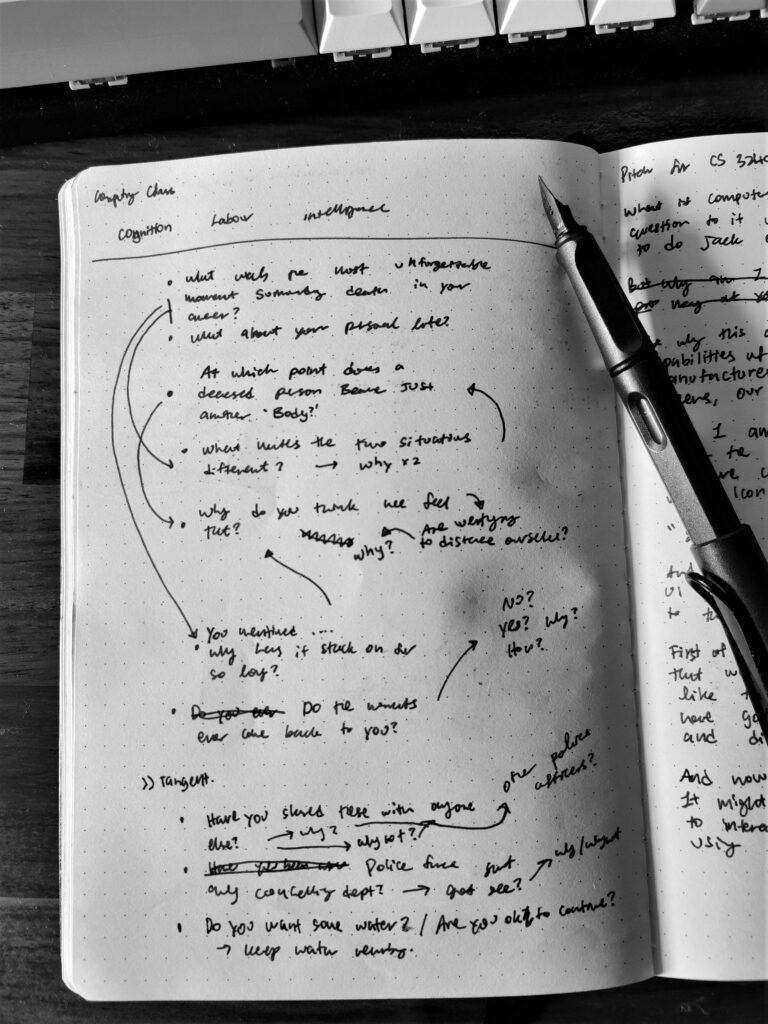 Class
Cognition Labour Intelligence
• What was the most unforgettable
moment surrounding death in your
career?
• What about your personal life?
At which point does a
• deceased person become just
another 'Body?'
• What makes the two situations
different? → why x2
• Why do you think we feel
that? why? Are we trying
to distance ourselves?
• You mentioned ....
why has it stuck on for
so long?
NO?
yes? why?
How?
• Do you ever Do the moments
ever come back to you?
>> Tangent.
• Have you shared these with anyone
else? → why? → why not? other police
officers?
• Have you been Police force
any counselling dept? → see? why/why not
• Do you want some water? / Are you ok to continue?
→ keep water nearby.
Pitch for CS
What is compute
question to it
to do jack
But why am I
why this
abilities of
manufacture
our
I am
to
First of
that w
like
have
and di
And now
It might
to intera
using